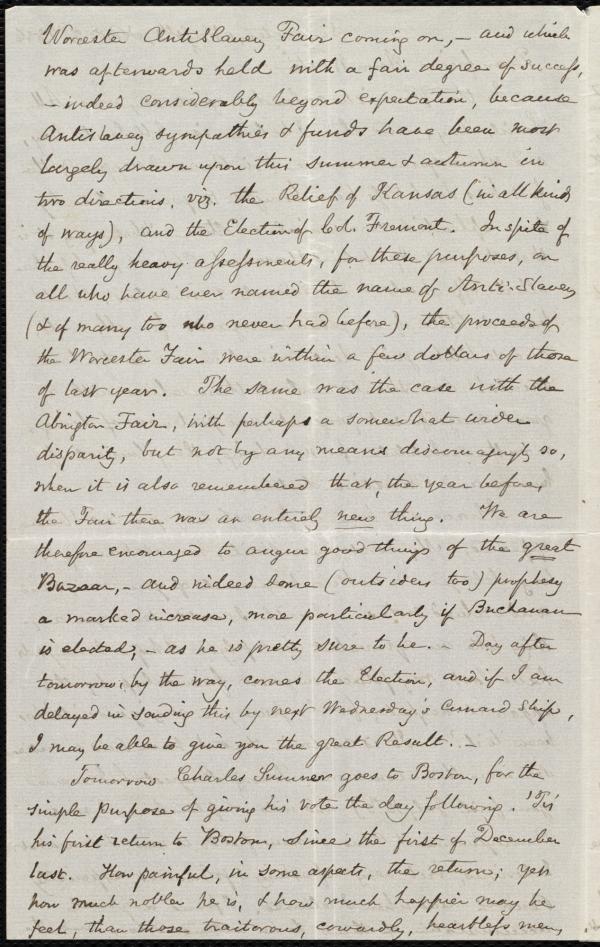 Worcester AntiSlavery Fair coming on, – and which
was afterwards held with a fair degree of success,
– indeed considerably beyond expectation, because
Antislavery sympathies & funds have been most
largely drawn upon this summer & autumn in
two directions, viz. the Relief of Kansas (in all kinds
of ways), and the Election of Col. Fremont. In spite of
the really heavy assessments, for these purposes, on
all who have ever named the name of Anti-Slavery
(& of many too who never had before), the proceeds of
the Worcester Fair were within a few dollars of those
of last year. The same was the case with the
Abington Fair, with perhaps a somewhat wider
disparity, but not by any means discouragingly so,
when it is also remembered that, the year before,
the Fair there was an entirely new thing. We are
therefore encouraged to augur good things of the great
Bazaar, – and indeed some (outsiders too) prophesy
a marked increase, more particularly if Buchanan
is elected, – as he is pretty sure to be. – Day after
tomorrow, by the way, comes the Election, and if I am
delayed in sending this by next Wednesday's Cunard Ship,
I may be able to give you the great Result. –
Tomorrow Charles Sumner goes to Boston, for the
simple purpose of giving his vote the day following. 'Tis
his first return to Boston, since the first of December
last. How painful, in some aspects, the return; yet
how much nobler he is, & how much happier may he
feel, than those traitorous, cowardly, heartless men,